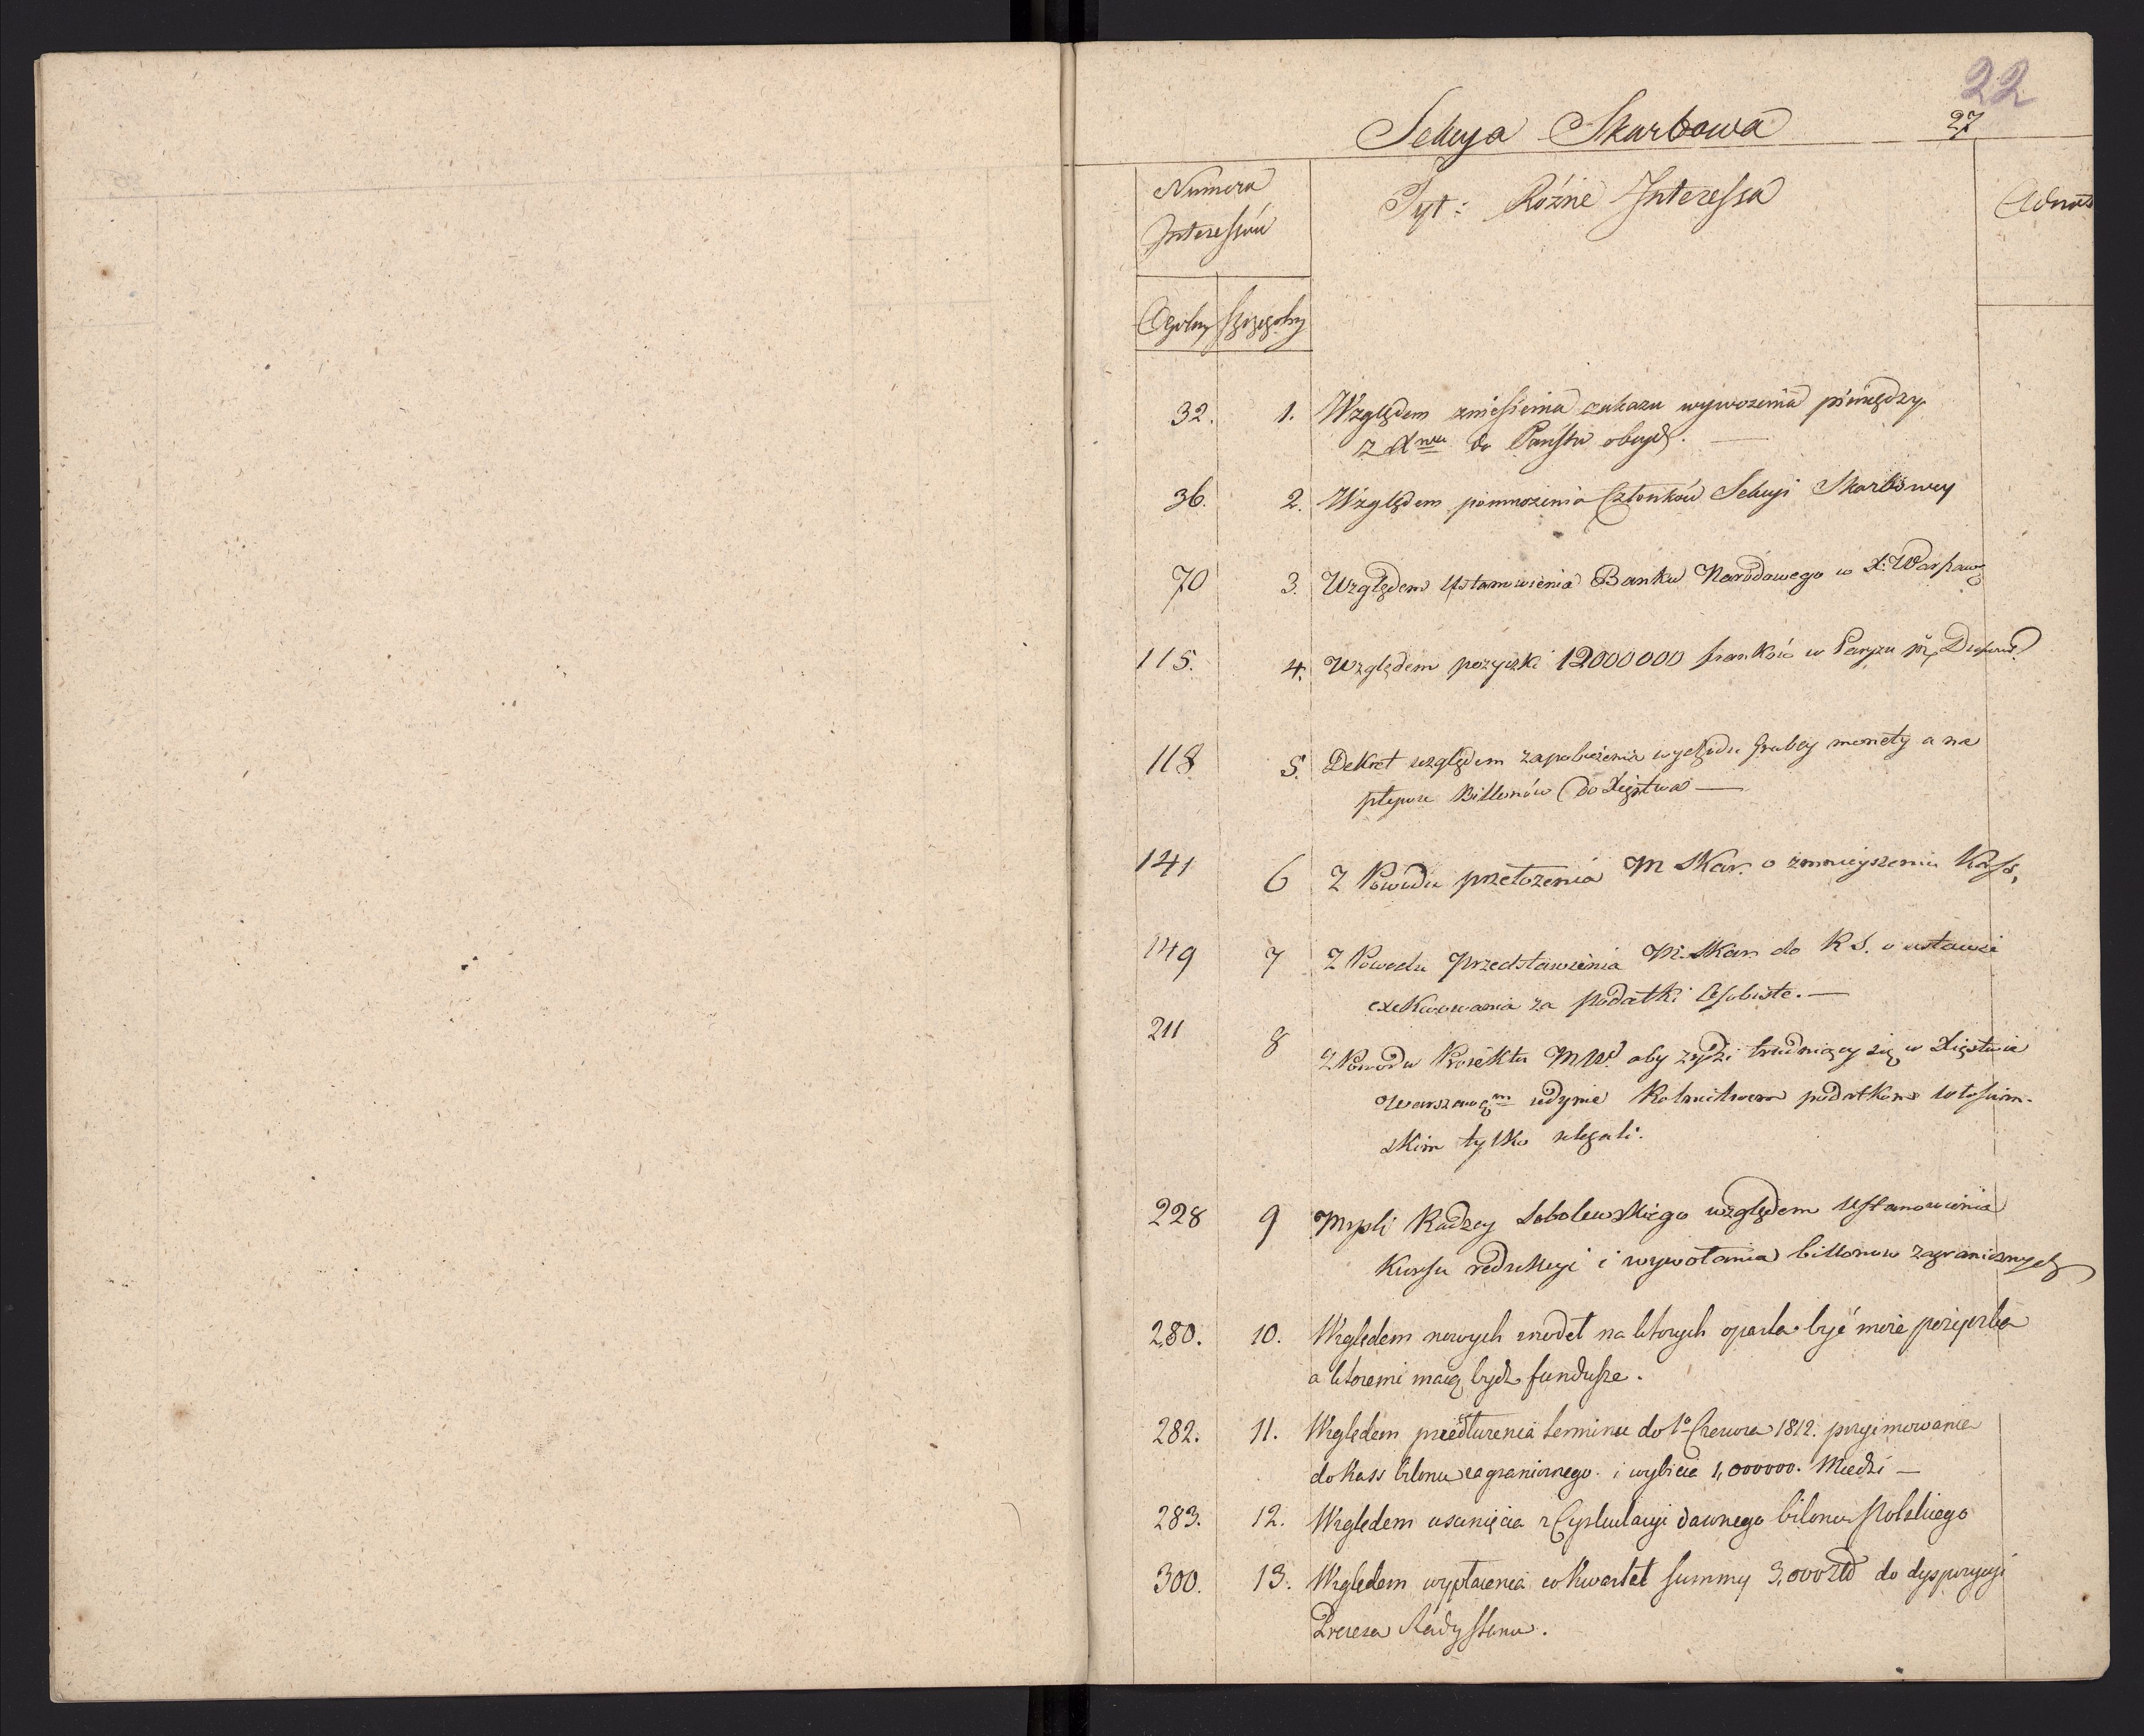 22
Sekcya Skarbowa
27
Numera
Interessów
Tyt: Różne Interessa
Adno
Ogolny Szczegolny
32. 1. Względem zniesienia zakazu wywozenia pieniędzy
z Xtwa do Państw obcych. —
36. 2. Względem pomnożenia Członków Sekcyi Skarbowey
70 3. Względem Ustanowienia Banku Narodowego w X. Warszaw
115. 4. Względem pożyczki 12000000 franków w Paryżu
118 5. Dekret względem zapobieżenia wychodu grubey monety a na
Billonów do Xięstwa —
141 6 Z Powodu przełożenia M Skar. o zmnieyszeniu Kass,
149 7 Z Powodu Przedstawienia M. Skar. do R S. o ustawie
exekwowania za podatki Osobiste. —
211 8 Z Powodu Proiektu MW. aby żydzi trudniący się w Xięstwie
Warszawm jedynie Rolnictwem podatkom włościan-
skim tylko ulegali.
228 9 Myśli Radzcy Sobolewskiego względem Ustanowienia
Kursu redukcyi i wywołania billonow zagranicznych
280. 10. Względem nowych źrodeł na ktorych oparta być może pożyczka
a ktoremi maią bydz fundusze.
282. 11. Względem przedłużenia terminu do 1o Czerwca 1812. przyimowania
do Kass bilonu zagranicznego. i wybicie 1,000000. Miedzi —
283. 12. Względem usunięcia z Cyrkulacyi dawnego bilonu Polskiego
300. 13. Względem wypłacenia co Kwartał summy 3,000 zł do dyspozycyi
Prezesa Rady Stanu.